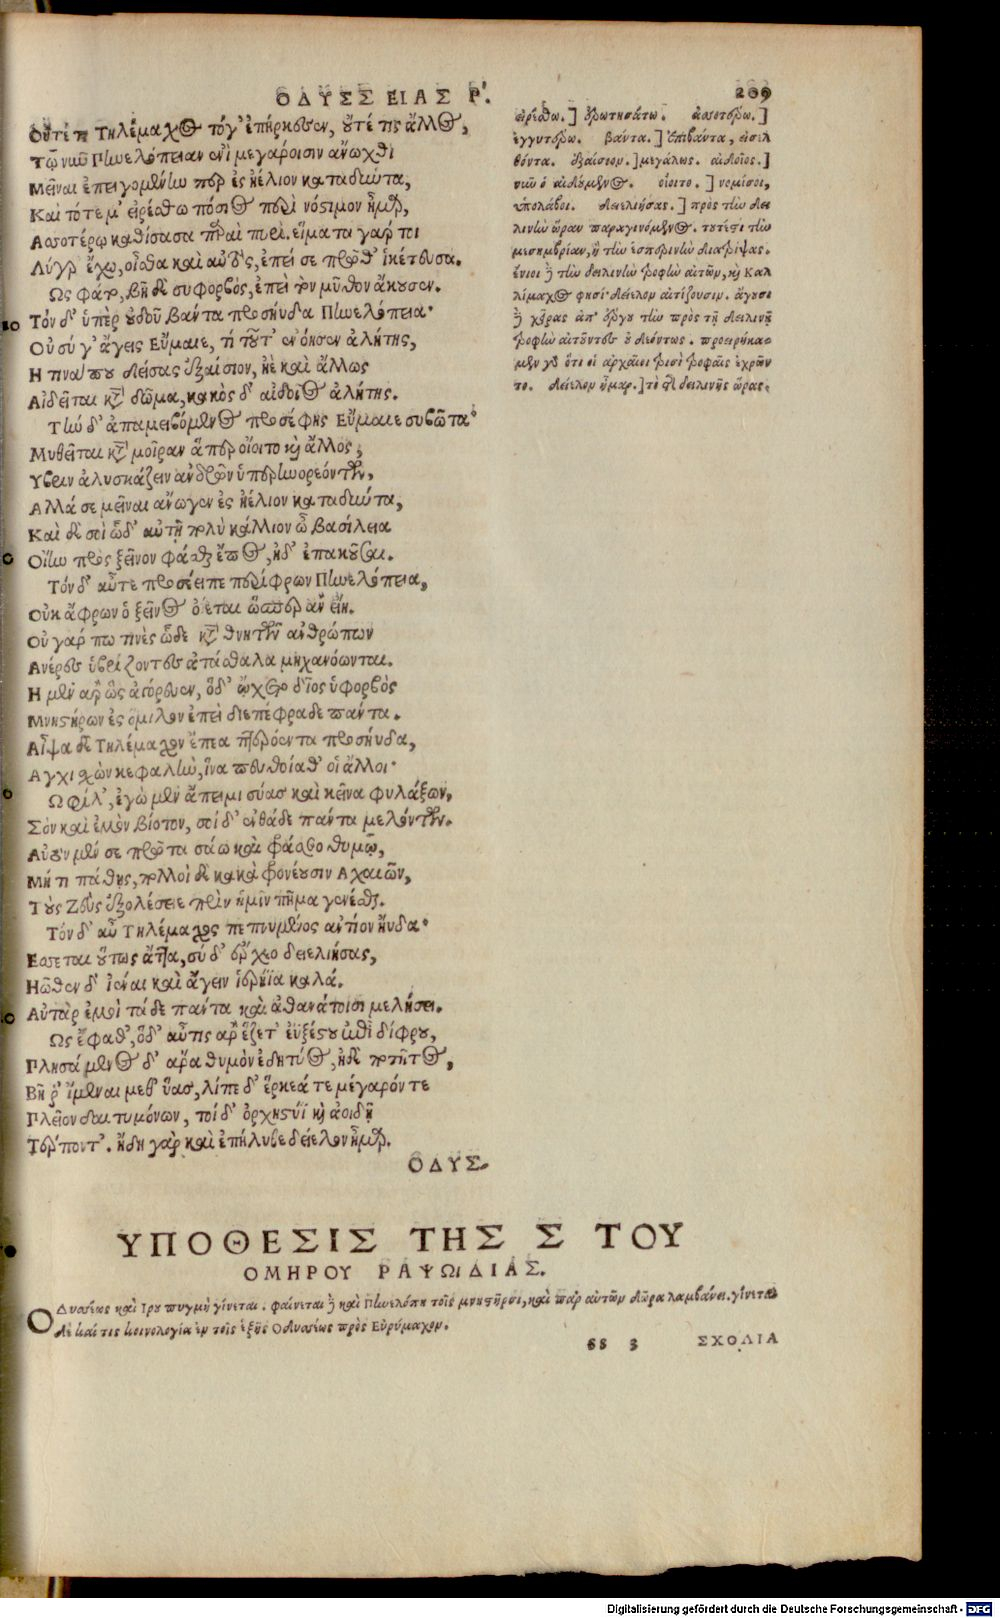 ΟΔΥΣΣΕΙΑΣ Ρ΄. 209
Οὔτέ τι Τηλέμαχος τόγ' ἐπήρκεσεν, οὔτέ τις ἄλλος,
Τῷ νῦν Πηνελόπειαν ἐνὶ μεγάροισιν ἄνωχθι
Μεῖναι ἐπειγομένην περ ἐς ἠέλιον καταδύντα,
Καὶ τότε μ' εἰρέσθω πόσιος περὶ νόστιμον ἦμαρ,
Ασσοτέρω καθίσασα παραὶ πυρί. εἵματα γάρ τοι
Λύγρ' ἔχω, οἶσθα καὶ αὐτὸς, ἐπεί σε πρῶθ' ἱκέτευσα.
Ως φάτο, βῆ δὲ συφορβὸς, ἐπεὶ τὸν μῦθον ἄκουσεν.
Τὸν δ' ὑπὲρ οὐδοῦ βάντα προσηύδα Πηνελόπεια·
Οὐ σύ γ' ἄγεις Εὔμαιε, τί τοῦτ' ἐνόησεν ἀλήτης,
Η τινά που δείσας ἐξαίσιον, ἠὲ καὶ ἄλλως
Αἰδεῖται κατὰ δῶμα, κακὸς δ' αἰδοῖος ἀλήτης.
Τὴν δ' ἀπαμειβόμενος προσέφης Εὔμαιε συβῶτα·
Μυθεῖται κατὰ μοῖραν ἅπερ οἴοιτο καὶ ἄλλος,
Υβριν ἀλυσκάζειν ἀνδρῶν ὑπερηνορεόντων,
Αλλά σε μεῖναι ἄνωγεν ἐς ἠέλιον καταδύντα,
Καὶ δὲ σοὶ ὧδ' αὐτῇ πολὺ κάλλιον ὦ βασίλεια
Οἴην πρὸς ξεῖνον φάσθαι ἔπος, ἠδ' ἐπακοῦσαι.
Τὸν δ' αὖτε προσέειπε περίφρων Πηνελόπεια,
Οὐκ ἄφρων ὁ ξεῖνος ὀΐεται ὥσπερ ἂν εἴη.
Οὐ γάρ πω τινὲς ὧδε κατὰ θνητῶν ἀνθρώπων
Ανέρες ὑβρίζοντες ἀτάσθαλα μηχανόωνται.
Η μὲν ἄρ' ὣς ἀγόρευεν, ὅδ' ᾤχετο δῖος ὑφορβὸς
Μνηστήρων ἐς ὅμιλον ἐπεὶ διεπέφραδε πάντα.
Αἶψα δὲ Τηλέμαχον ἔπεα πτερόεντα προσηύδα,
Αγχι σχὼν κεφαλὴν, ἵνα πευθοίαθ' οἱ ἄλλοι·
Ω φίλ', ἐγὼ μὲν ἄπειμι σύας καὶ κεῖνα φυλάξων,
Σὸν καὶ ἐμὸν βίοτον, σοὶ δ' ἐνθάδε πάντα μελόντων.
Αὐτὸν μέν σε πρῶτα σάω καὶ φράζεο θυμῷ,
Μή τι πάθῃς, πολλοὶ δὲ κακὰ φρονέουσιν Αχαιῶν,
Τοὺς Ζεὺς ἐξολέσειε πρὶν ἡμῖν πῆμα γενέσθαι.
Τὸν δ' αὖ Τηλέμαχος πεπνυμένος ἀντίον ηὔδα·
Εσσεται οὕτως ἄττα, σύ δ' ἔρχεο δειελιήσας,
Ηῶθεν δ' ἰέναι καὶ ἄγειν ἱερήϊα καλά.
Αὐτὰρ ἐμοὶ τάδε πάντα καὶ ἀθανάτοισι μελήσει.
Ως ἔφαθ', ὅδ' αὖτις ἄρ' ἕζετ' ἐϋξέστου ἐπὶ δίφρου,
Πλησάμενος δ' ἄρα θυμὸν ἐδητύος, ἠδὲ ποτῆτος,
Βῆ ῥ' ἴμεναι μεθ' ὕας, λίπε δ' ἕρκεά τε μέγαρόν τε
Πλεῖον δαιτυμόνων, τοί δ' ὀρχηστύϊ καὶ ἀοιδῇ
Τέρποντ'. ἤδη γὰρ καὶ ἐπήλυθε δείελον ἦμαρ.
ΟΔΥΣ.
εἰρέσθω.] ἐρωτησάτω. ἀσσοτέρω.]
ἐγγυτέρω. βάντα.] ἐπιβάντα, εἰσελ
θόντα. ἐξαίσιον.] μεγάλως. αἰδοῖος.]
νῦν ὁ αἰδούμενος. οἴοιτο.] νομίσοι,
ὑπολάβοι. δειελιήσας.] πρὸς τὴν δει
λινὴν ὥραν παραγινόμενος. τουτέστι τὴν
μεσημβρίαν, ἢ τὴν ἑσπερινὴν διατρίψας.
ἔνιοι δὲ τὴν δειλινὴν τροφὴν αἰτῶν, καὶ Καλ
λίμαχος φησί· δείελον αἰτίζουσιν. ἄγουσι
δὲ χεῖρας ἀπ' ἔργου τὴν πρὸς τῇ δειλινῇ
τροφὴν αἰτοῦντες οὐ δεόντως. προειρήκα-
μεν γὰρ ὅτι οἱ ἀρχαῖοι τρισὶ τροφαῖς ἐχρῶν
το. δείελον ἦμαρ.] τὸ ἐπὶ δειλινῆς ὥρας.
ΥΠΟΘΕΣΙΣ ΤΗΣ Σ ΤΟΥ
ΟΜΗΡΟΥ ΡΑΨΩΙΔΙΑΣ.
Οδυσσέως καὶ Ιρου πυγμὴ γίνεται. φαίνεται δὲ καὶ Πηνελόπη τοῖς μνηστῆρσι, καὶ παρ αὐτῶν δῶρα λαμβάνει. γίνεται
δὲ καί τις κοινολογία ἐν τοῖς ἑξῆς Οδυσσέως πρὸς Εὐρύμαχον.
ss 3 ΣΧΟΛΙΑ
Digitalisierung gefördert durch die Deutsche Forschungsgemeinschaft - DFG